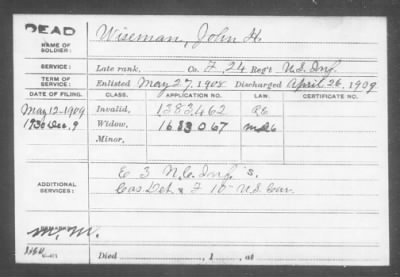 DEAD
NAME OF SOLDIER: Wiseman, John H.
SERVICE: Late rank, Co. F, 24 Reg't U.S. Inf.
TERM OF SERVICE: Enlisted May 27, 1908 Discharged April 26, 1909
DATE OF FILING. CLASS. APPLICATION NO. LAW. CERTIFICATE NO.
May 12-1909 Invalid, 1383462
1930 Dec. 9 Widow, 1683067
Minor,
ADDITIONAL SERVICES: E 3 N.C. Inf. s.
Cas Det. & F 10" U.S. Cav.
M.M.
Died , 1 , at